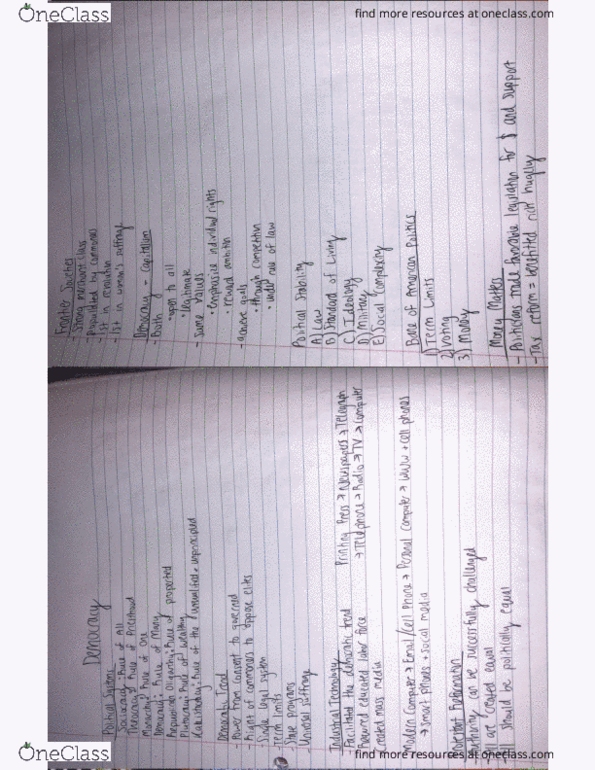 OneClass
find more resources at oneclass.com
Democracy
Political Systems
Sociocracy: Rule of All
Theocracy: Rule of Priesthood
Monarchy: Rule of One
Democracy: Rule of Many
Oligarchy: Rule of propertied
Plutocracy: Rule of Wealthy
Rule of the unqualified + unprincipled
Democratic Trend
- Power from consent to governed
- Right of commoners to oppose elites
- Single legal system
- Term limits
- State programs
Universal suffrage
Industrial Technology
- Facilitated the democratic trend
Required educated labor force
Created mass media
Printing Press → Newspapers → Telegraph
→ Telephone → Radio → TV → Computer
Modern Computer → Email/Cell Phone → Personal Computer → WWW + cell phones
→ Smart phones + social media
Protestant Reformation
Authority can be successfully challenged
All are created equal
All should be politically equal
Frontier Societies
- Strong merchant class
- Populated by commoners
- 1st in revolution
- 1st in women's suffrage
Democracy - Capitalism
- Both
• open to all
• legitimate
- Same Values
• emphasize individual rights
• reward ambition
achieve goals
• through competition
• under rule of law
Political Stability
A) Law
B) Standard of Living
C) Ideology
D) Military
E) Social Complexity
Base of American Politics
1) Term Limits
2) Voting
3) Money
Money Matters
- Politicians made favorable legislation for $ and support
- Tax reform = benefitted rich hugely
OneClass
find more resources at oneclass.com